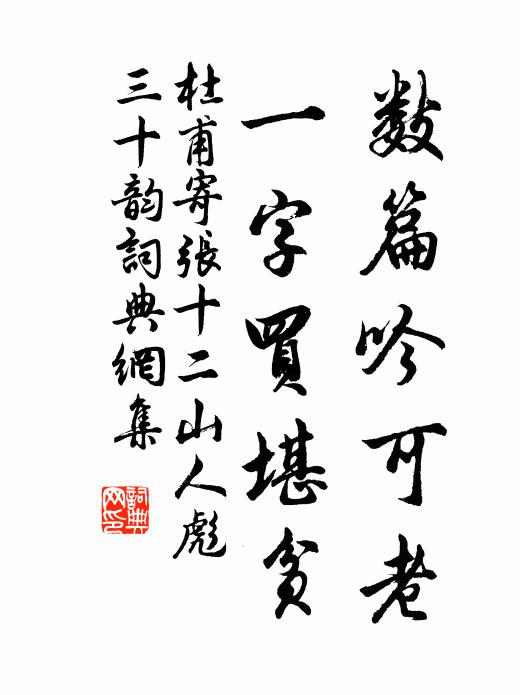 数篇吟可老
一字買堪貧
杜甫寄張十二山人彪
三十韵詞典網集
詞典
网印